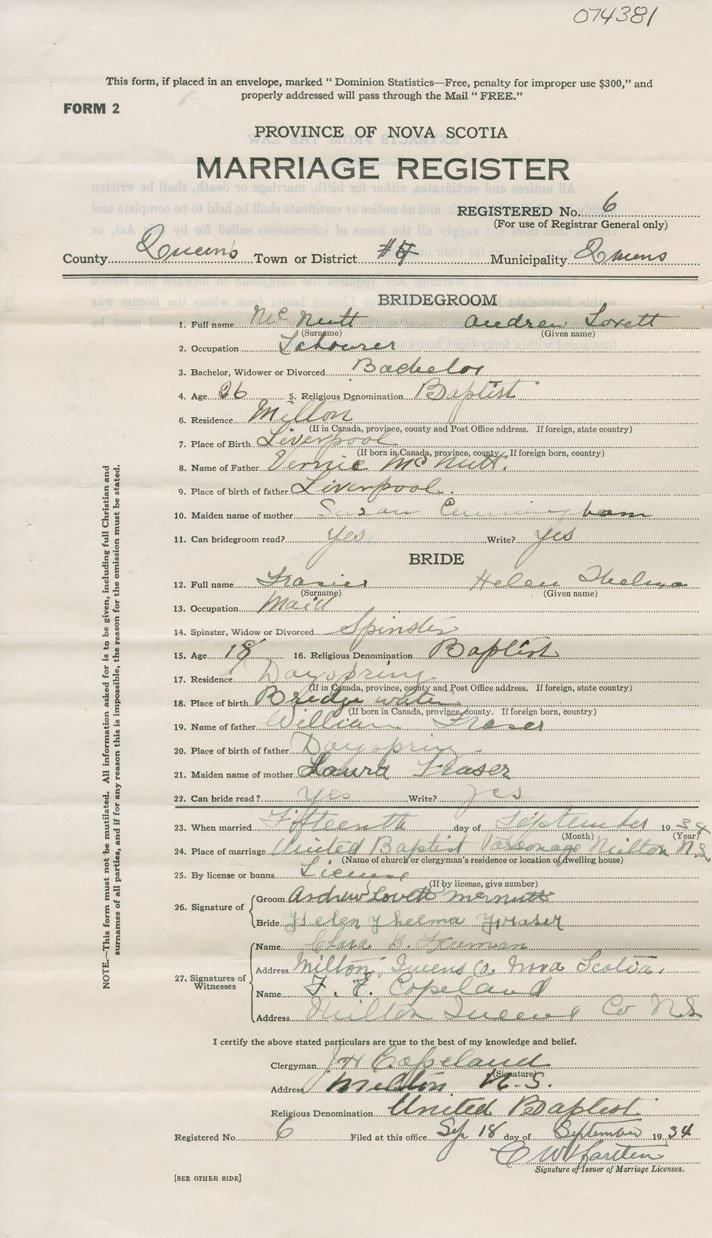 074381
This form, if placed in an envelope, marked " Dominion Statistics—Free, penalty for improper use $300," and
properly addressed will pass through the Mail " FREE."
FORM 2
PROVINCE OF NOVA SCOTIA
MARRIAGE REGISTER
REGISTERED No. 6
(For use of Registrar General only)
County Queens Town or District #4 Municipality Queens
BRIDEGROOM
1. Full name McNutt Andrew Lovett
(Surname) (Given name)
2. Occupation Labourer
3. Bachelor, Widower or Divorced Bachelor
4. Age 26 5. Religious Denomination Baptist
6. Residence Milton
(If in Canada, province, county and Post Office address. If foreign, state country)
7. Place of Birth Liverpool
(If born in Canada, province, county. If foreign born, country)
8. Name of Father Vernie McNutt.
9. Place of birth of father Liverpool.
10. Maiden name of mother Susan Cunningham
11. Can bridegroom read? Yes Write? Yes
BRIDE
12. Full name Frasier Helen Thelma
(Surname) (Given name)
13. Occupation Maid
14. Spinster, Widow or Divorced Spinster
15. Age 18 16. Religious Denomination Baptist
17. Residence Dayspring
(If in Canada, province, county and Post Office address. If foreign, state country)
18. Place of birth Bridgewater
(If born in Canada, province, county. If foreign born, country)
19. Name of father William Fraser
20. Place of birth of father Dayspring
21. Maiden name of mother Laura Fraser
22. Can bride read? Yes Write? Yes
23. When married Fifteenth day of September 1934
(Month) (Year)
24. Place of marriage United Baptist Parsonage Milton N.S.
(Name of church or clergyman's residence or location of dwelling house)
25. By license or banns License
(If by license, give number)
26. Signature of
Groom Andrew Lovett McNutt
Bride Helen Thelma Fraser
27. Signatures of Witnesses
Name Clara B. Freeman
Address Milton, Queens Co. Nova Scotia.
Name F. E. Copeland
Address Milton Queens Co N.S.
I certify the above stated particulars are true to the best of my knowledge and belief.
Clergyman Copeland
(Signature)
Address Milton N.S.
Religious Denomination United Baptist
Registered No. 6 Filed at this office Sep 18 day of September 1934
Signature of Issuer of Marriage Licenses.
[SEE OTHER SIDE]
NOTE.—This form must not be mutilated. All information asked for is to be given, including full Christian and
surnames of all parties, and if for any reason this is impossible, the reason for the omission must be stated.